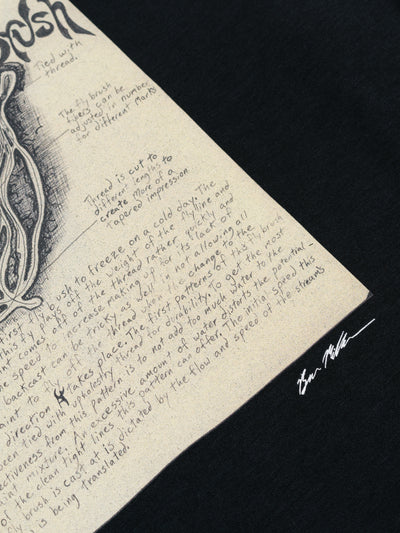 brush
Tied with
thread.
The fly brush
fibers can be
adjusted in number
for different marks
Thread is cut to
different lengths to
create more of a
tapered impression.
brush to freeze on a cold day. The
plays off the weight of the fly line and
comes off of the thread rather quickly and
speed to increase making up for its lack of
backcast is tricky as well in not allowing all
paint to fly off the thread when the change to the
direction takes place. The first patterns of this fly brush
been tied with upholstry thread for durability. To get the most
effectiveness from this pattern is to not add too much water to the
paint mixture. An excessive amount of water distorts the potential
of the clean tight lines this pattern can offer. The initial speed this
fly brush is cast at is dictated by the flow and speed of the streams
is being translated.